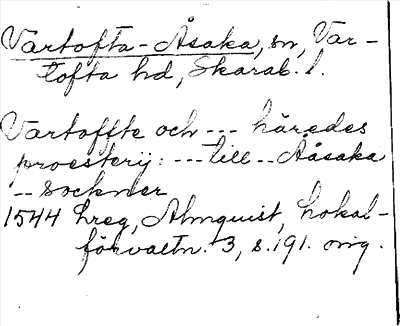 Vartofta-Åsaka, sn, Var-
tofta hd, Skarab. l.
Vartoffte och --- häredes
proesterij: --- till -- Aåsaka
-- sockner
1544 hreg, Almquist, Lokal-
förvaltn. 3, s. 191. orig.